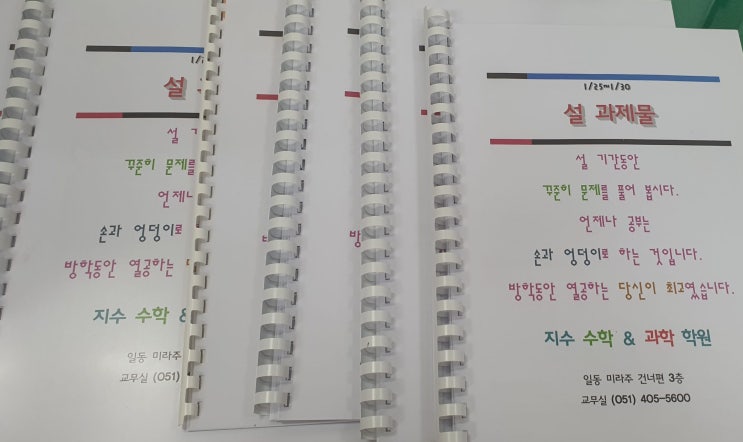 설
설
꾸준히 문제를
언제
손과 엉덩이로
방학동안 열공하는
지수 수학 &
일동 미라주
교무실 (051)
방
1/25~1/30
설 과제물
설 기간동안
꾸준히 문제를 풀어 봅시다.
언제나 공부는
손과 엉덩이로 하는 것입니다.
방학동안 열공하는 당신이 최고였습니다.
지수 수학 & 과학 학원
일동 미라주 건너편 3층
교무실 (051) 405-5600